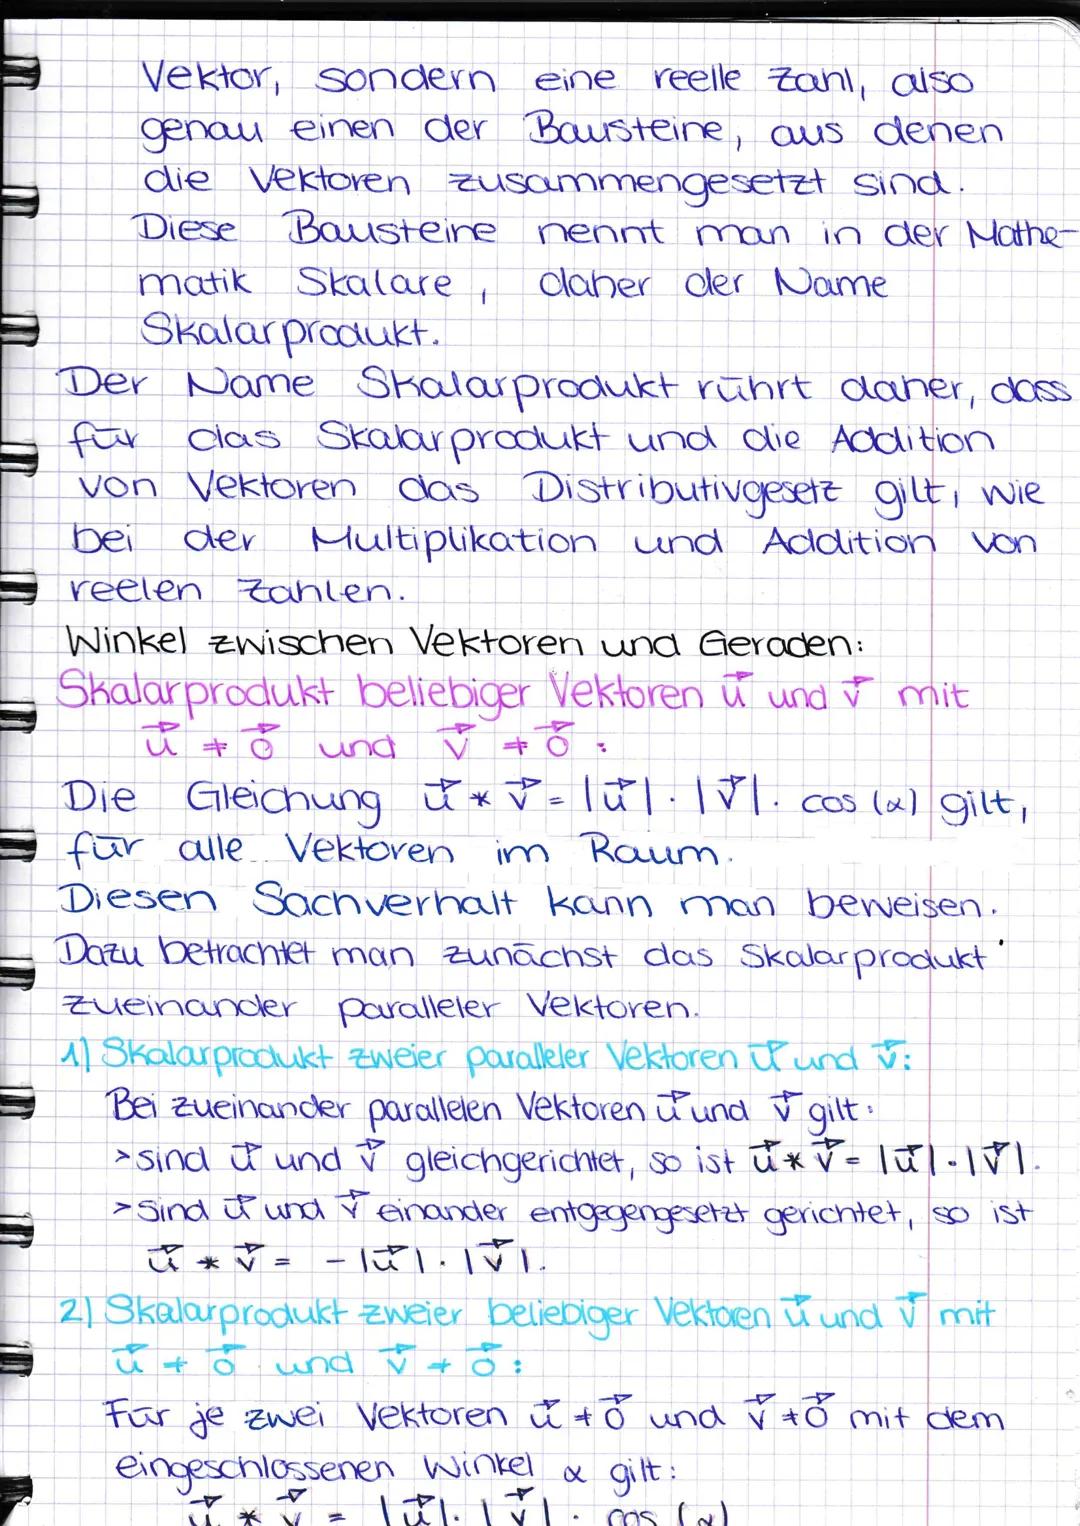 Vektor, sondern eine reelle Zahl, also
genau einen der Bausteine, aus denen
die Vektoren zusammengesetzt sind.
Diese Bausteine nennt man in der Mathe-
matik Skalare, daher der Name
Skalarprodukt.
Der Name Skalarprodukt rührt daher, dass
für das Skalarprodukt und die Addition
von Vektoren das Distributivgesetz gilt, wie
bei der Multiplikation und Addition von
reelen Zahlen.
Winkel zwischen Vektoren und Geraden:
Skalarprodukt beliebiger Vektoren u⃗ und v⃗ mit
u⃗ ≠ o⃗ und v⃗ ≠ o⃗ :
Die Gleichung u⃗ * v⃗ = |u⃗| · |v⃗| · cos (α) gilt,
für alle Vektoren im Raum.
Diesen Sachverhalt kann man beweisen.
Dazu betrachtet man zunächst das Skalarprodukt
zueinander paralleler Vektoren.
1) Skalarprodukt zweier paralleler Vektoren u⃗ und v⃗:
Bei zueinander parallelen Vektoren u⃗ und v⃗ gilt:
> sind u⃗ und v⃗ gleichgerichtet, so ist u⃗ * v⃗ = |u⃗| · |v⃗|.
> sind u⃗ und v⃗ einander entgegengesetzt gerichtet, so ist
u⃗ * v⃗ = - |u⃗| · |v⃗|.
2) Skalarprodukt zweier beliebiger Vektoren u⃗ und v⃗ mit
u⃗ ≠ o⃗ und v⃗ ≠ o⃗ :
Für je zwei Vektoren u⃗ ≠ o⃗ und v⃗ ≠ o⃗ mit dem
eingeschlossenen Winkel α gilt:
u⃗ * v⃗ = |u⃗| · |v⃗| · cos (α)